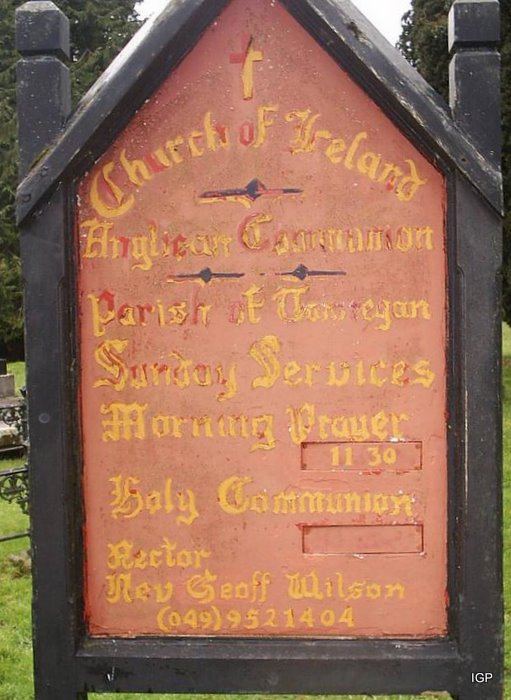 Church of Ireland
Anglican Communion
Parish of Tomregan
Sunday Services
Morning Prayer
11 30
Holy Communion
Rector
Rev Geoff Wilson
(049)9521404
IGP